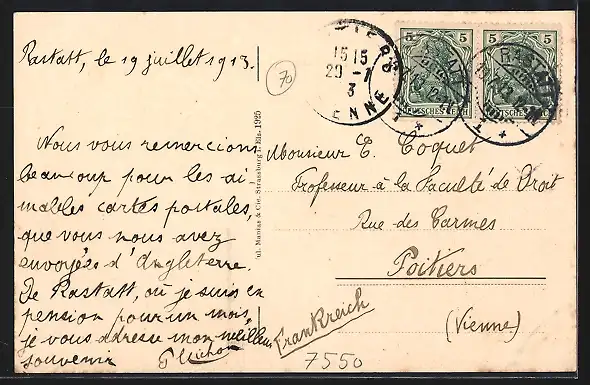 Rastatt, le 19 juillet 1913.
70
Nous vous remercions
beaucoup pour les ai-
mables cartes postales,
que vous nous avez
envoyées d'Angleterre.
De Rastatt, où je suis en
pension pour un mois,
je vous adresse mon meilleur
souvenir
Jul. Manias & Cie, Strassburg i. Els. 1925
15 15
20 - 7
3
ENNE
5 5
DEUTSCHES REICH
5 5
DEUTSCHES REICH
RASTATT
Monsieur E. Coquet
Professeur à la Faculté de Droit
Rue des Carmes
Poitiers
(Vienne)
Frankreich
7550